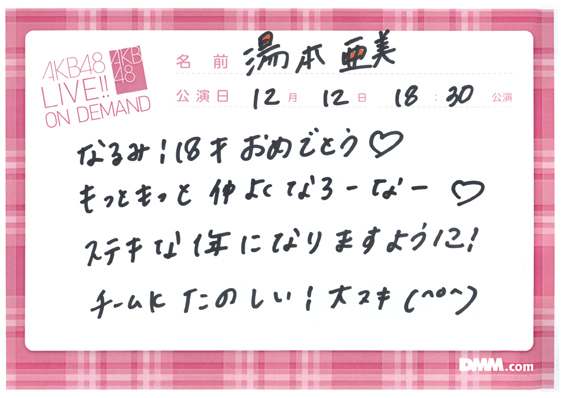 AKB48
LIVE!!
ON DEMAND
AKB
48
名前 湯本亜美
公演日 12月 12日 18:30 公演
なるみ!18才おめでとう♡
もっともっと仲よくなろーなー ♡
ステキな1年になりますように!
チームK たのしい!大スキ(^o^)
DMM.com